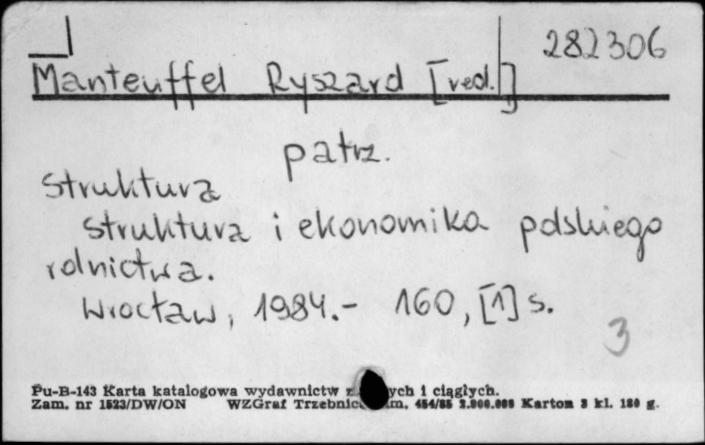 282306
Manteuffel Ryszard [red.]
patrz.
Struktura
Struktura i ekonomika polskiego
rolnictwa.
Wrocław, 1984.- 160, [1] s.
3
Pu-B-143 Karta katalogowa wydawnictw i ciągłych.
Zam. nr 1523/DW/ON WZGraf 454/85 Karton 3 kl. 180 g.